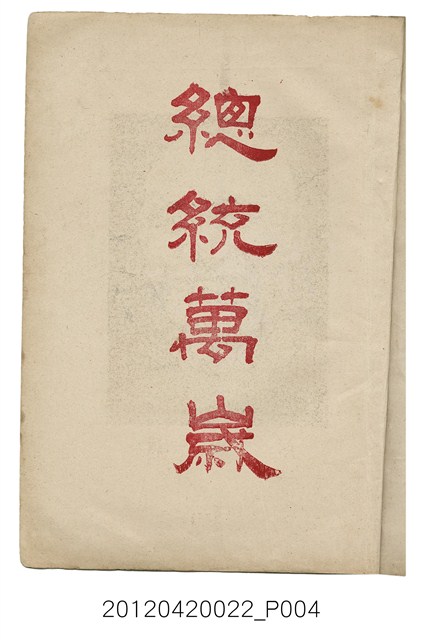 總統萬歲
20120420022_P004